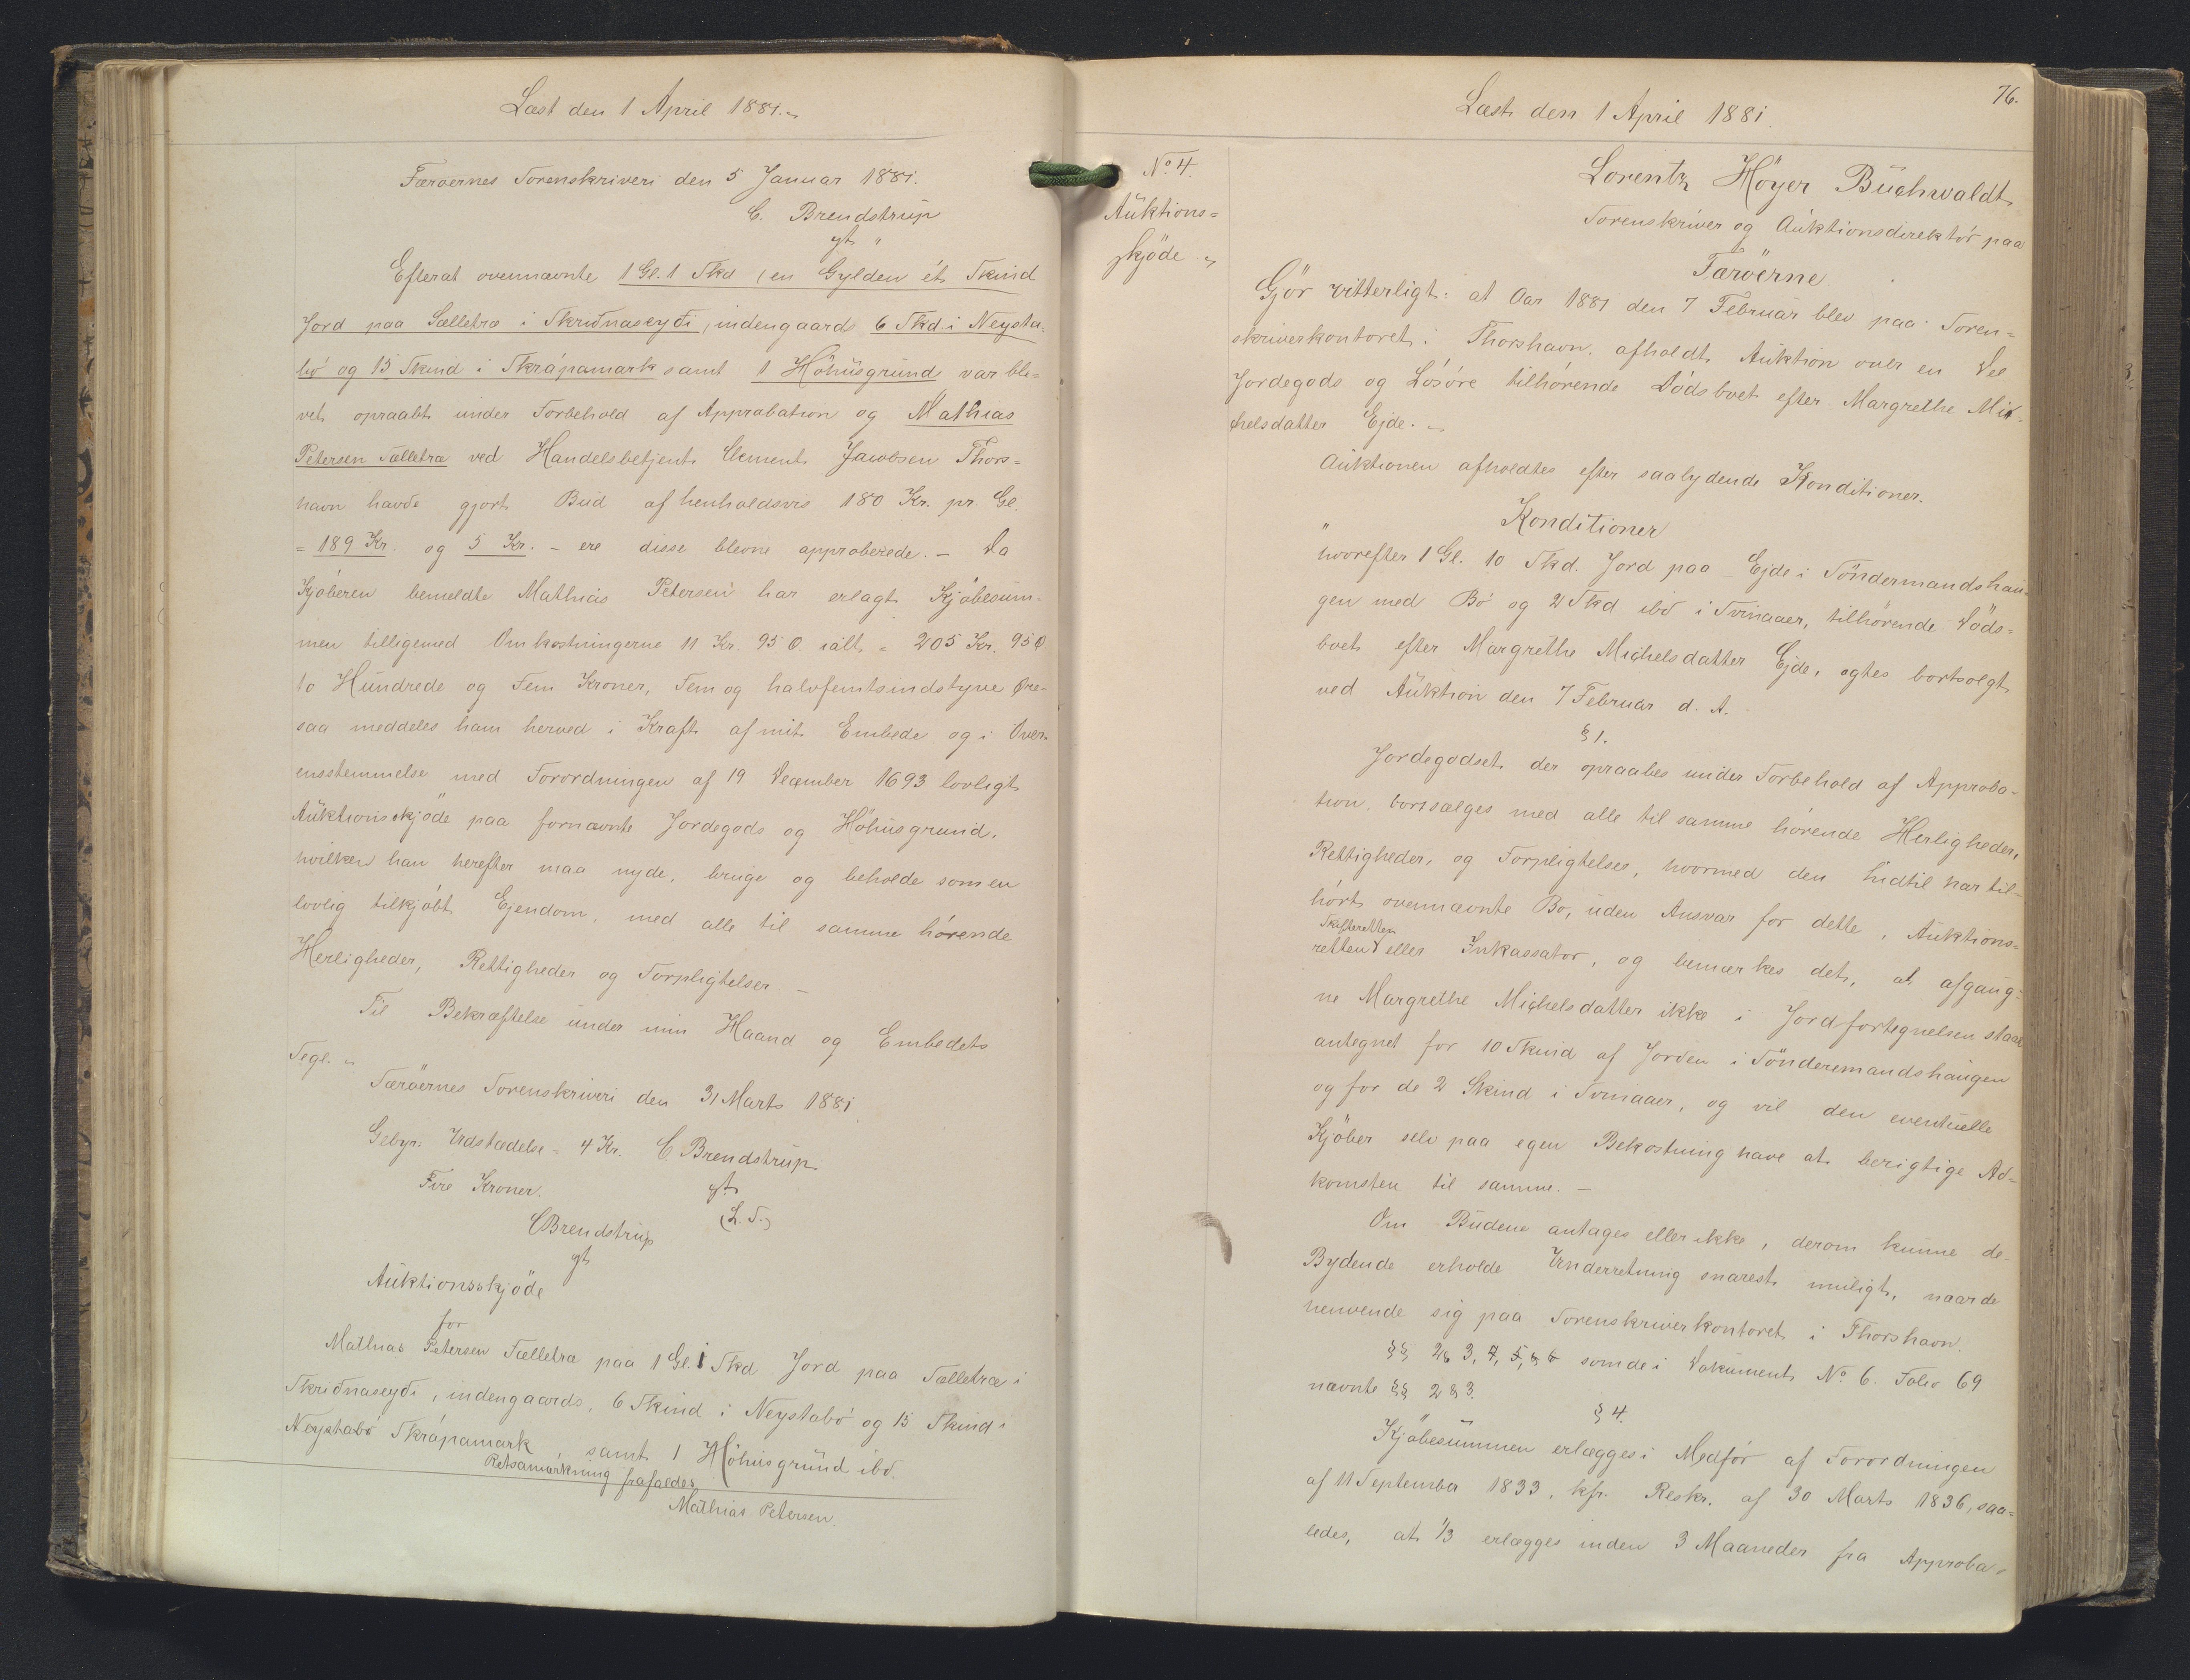 Læst den 1 April 1881.
Færøernes Sorenskriveri den 5 Januar 1881.
C. Brendstrup
gt
Efterat ovennævnte 1 Gl. 1 Skd (en Gylden ét Skind
Jord paa Sælletræ i Skriðnaseyði, indengaards 6 Skd i Neysta-
bó og 15 Skind i Skrápamark samt 1 Höhüsgrund var ble-
vet opraabt under Forbehold af Approbation og Mathias
Petersen Sælletræ ved Handelsbetjent Clement Jacobsen Thors-
havn havde gjort Bud af henholdsvis 180 Kr. pr. Gl.
= 189 Kr. og 5 Kr. – ere disse blevne approberede. – Da
Kjøberen bemeldte Mathias Petersen har erlagt Kjøbesum-
men tilligemed Omkostningerne 11 Kr. 95 Ø. ialt = 205 Kr. 95 Ø
to Hundrede og Fem Kroner, Fem og halvfemtsindstyve Øre-
saa meddeles ham herved i Kraft af mit Embede og i Over-
ensstemmelse med Forordningen af 19 December 1693 lovligt
Auktionsskjøde paa fornævnte Jordegods og Höhüsgrund,
hvilken han herefter maa nyde, bruge og beholde som en
lovlig tilkjøbt Ejendom, med alle til samme hørende
Herligheder, Rettigheder og Forpligtelser –
Til Bekræftelse under min Haand og Embedets
Segl.
Færöernes Sorenskriveri den 31 Marts 1881.
Gebyr: Udstædelse = 4 Kr. C. Brendstrup
Fire Kroner. gt
CBrendstrup (L.S.)
gt
Auktionsskjöde
for
Mathias Petersen Sælletræ paa 1 Gl. 1 Skd Jord paa Sælletræ i
Skriðnaseyði, indengaards, 6 Skind i Neystabó og 15 Skind i
Neystabó Skrápamark, samt 1 Höhüsgrund ibd.
Retsanmærkning frafaldes
Mathias Petersen.
76.
Læst den 1 April 1881.
No. 4.
Auktions=
skjöde
Lorentz Höyer Buchwaldt
Sorenskriver og Auktionsdirektør paa
Færöerne
Gjör vitterligt: at Aar 1881 den 7 Februar blev paa Soren=
skriverkontoret i Thorshavn afholdt Auktion over en Del
Jordegods og Løsøre tilhørende Dødsboet efter Margrethe Mi-
chelsdatter Ejde. –
Auktionen afholdtes efter saalydende Konditioner.
Konditioner
" hvorefter 1 Gl. 10 Skd. Jord paa Ejde i Töndermandshau-
gen med Bö og 2 Skd ibd i Tvinaaer, tilhørende Døds=
boet efter Margrethe Michelsdatter Ejde, agtes bortsolgt
ved Auktion den 7 Februar d. A.
§ 1.
Jordegodset der opraabes under Forbehold af Approba-
tion, bortsælges med alle til samme hørende Herligheder,
Rettigheder, og Forpligtelser, hvormed den hidtil har til-
hørt ovennævnte Bo, uden Ansvar for dette, Auktions=
Skifteretten
retten eller Inkassator, og bemærkes det, at afgang=
ne Margrethe Michelsdatter ikke i Jordfortegnelsen staar
antegnet for 10 Skind af Jorden i Tönderemandshaugen
og for de 2 Skind i Tvinaaer, og vil den eventuelle
Kjöber selv paa egen Bekostning have at berigtige Ad-
komsten til samme. –
Om Budene antages eller ikke, derom kunne de
Bydende erholde Underretning snarest muligt, naar de
henvende sig paa Sorenskriverkontoret i Thorshavn.
§§ 2 & 3, 4, 5, & 6 som de i Dokument No. 6. Folio 69
nævnte §§ 2 & 3.
§ 4.
Kjöbesummen erlægges i Medfør af Forordningen
af 11 September 1833, kfr. Reskr. af 30 Marts 1836, saa=
ledes, at 1/3 erlægges inden 3 Maaneder fra Approba-